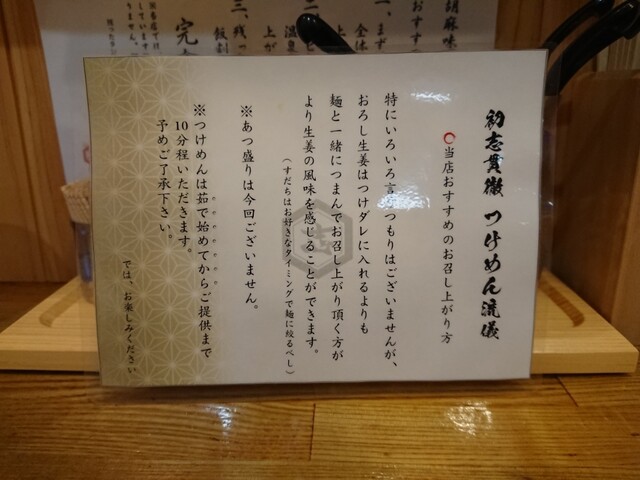 初志貫徹 つけめん流儀
当店おすすめのお召し上がり方
特にいろいろ言うつもりはございませんが、
おろし生姜はつけダレに入れるよりも
麺と一緒につまんでお召し上がり頂く方が
より生姜の風味を感じることができます。
(すだちはお好きなタイミングで麺に絞るべし)
※あつ盛りは今回ございません。
※つけめんは茹で始めてからご提供まで
10分程いただきます。
予めご了承下さい。
では、お楽しみください
胡麻味
おすすめ
一、まず
全体
上
温泉
三、残っ
飯割
完